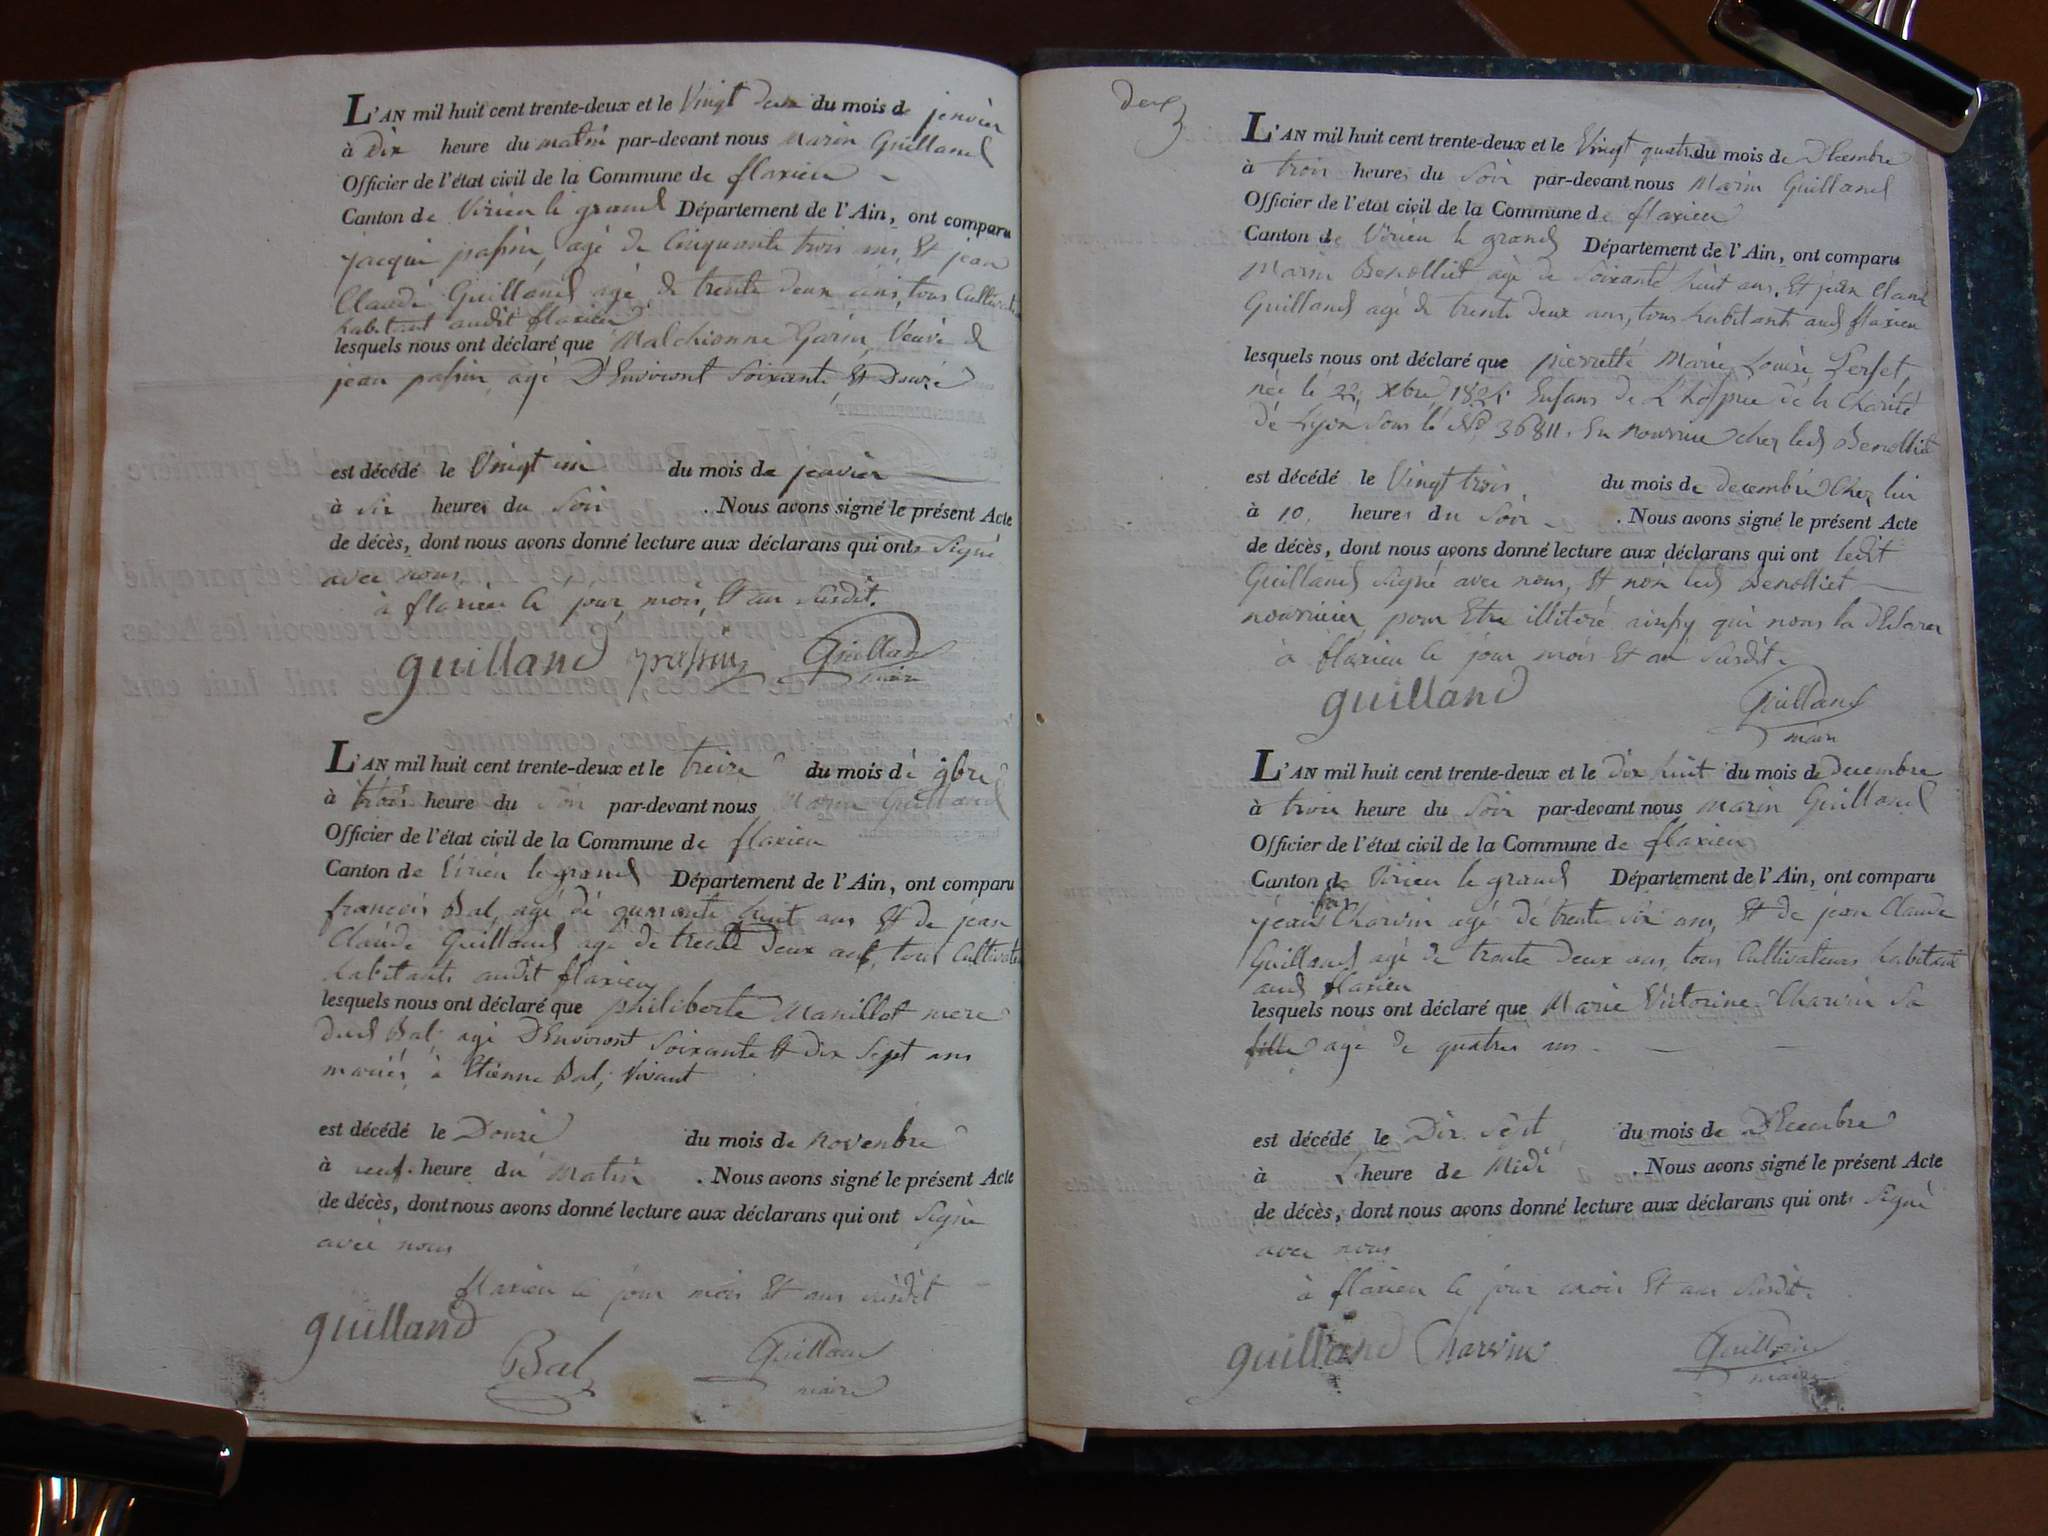 L'AN mil huit cent trente-deux et le Vingt deux du mois de jenvier
à Dix heure du matin par-devant nous Marin Guilland
Officier de l'état civil de la Commune de flaxieu
Canton de Virieu le grand Département de l'Ain, ont comparu
jacque passin, agé de Cinquante trois ans, Et jean
Claude Guilland agé de trente deux ans, tous Cultivate
habitant audit flaxieu
lesquels nous ont déclaré que Malchionne Garin, Veuve de
jean passin, agé D'Environt Soixante Et Douze
est décédé le Vingt un du mois de jenvier
à Six heures du Soir . Nous avons signé le présent Acte
de décès, dont nous avons donné lecture aux déclarans qui ont Signé
avec nous
à flaxieu le jour, mois, Et an Susdit.
guilland passin Guilland
maire
L'AN mil huit cent trente-deux et le treize du mois de 9bre
à trois heure du Soir par-devant nous Marin Guilland
Officier de l'état civil de la Commune de flaxieu
Canton de Virieu le grand Département de l'Ain, ont comparu
francois Bal, agé de quarante huit ans Et de jean
Claude Guilland agé de trente Deux ans, tous Cultivate
habitants audit flaxieu
lesquels nous ont déclaré que philiberte Manillot mere
dud Bal, agé D'Environt Soixante Et dix Sept ans
mariés à Etienne Bal, Vivant
est décédé le Douze du mois de novenbre
à neuf heure du Matin . Nous avons signé le présent Acte
de décès, dont nous avons donné lecture aux déclarans qui ont Signé
avec nous
flaxieu le jour mois Et ans susdit
guilland
Bal Guilland
maire
Deux
L'AN mil huit cent trente-deux et le Vingt quatre du mois de Décembre
à trois heures du Soir par-devant nous Marin Guilland
Officier de l'état civil de la Commune de flaxieu
Canton de Virieu le grand Département de l'Ain, ont comparu
Marin Benolliet agé de Soixante huit ans, Et jean Claude
Guilland agé de trente Deux ans, tous habitants aud flaxieu
lesquels nous ont déclaré que pierrette Marie Louise Perset
née le 22, Xbre, 182 Enfans de L'hospice de la Charité
de Lyon Sous le No 36811. En nourrice chez led Benolliet
est décédé le Vingt trois du mois de decembre chez lui
à 10, heures du Soir . Nous avons signé le présent Acte
de décès, dont nous avons donné lecture aux déclarans qui ont ledit
Guilland Signé avec nous, Et non led Benolliet
nourricier pour Etre illiteré ainsy qui nous la Déclaré
à flaxieu le jour mois Et an Susdit
guilland Guilland
maire
L'AN mil huit cent trente-deux et le dix huit du mois de Decembre
à trois heure du Soir par-devant nous Marin Guilland
Officier de l'état civil de la Commune de flaxieu
Canton de Virieu le grand Département de l'Ain, ont comparu
jean Charvin agé de trente six ans, Et de jean Claude
Guilland agé de trente Deux ans, tous Cultivateurs habitant
aud flaxieu
lesquels nous ont déclaré que Marie Victorine Charvin Sa
fille agé de quatres ans
est décédé le Dix Sept du mois de Décembre
à L'heure de Midi . Nous avons signé le présent Acte
de décès, dont nous avons donné lecture aux déclarans qui ont Signé
avec nous
à flaxieu le jour mois Et ans Susdit.
guilland Charvin Guilland
maire